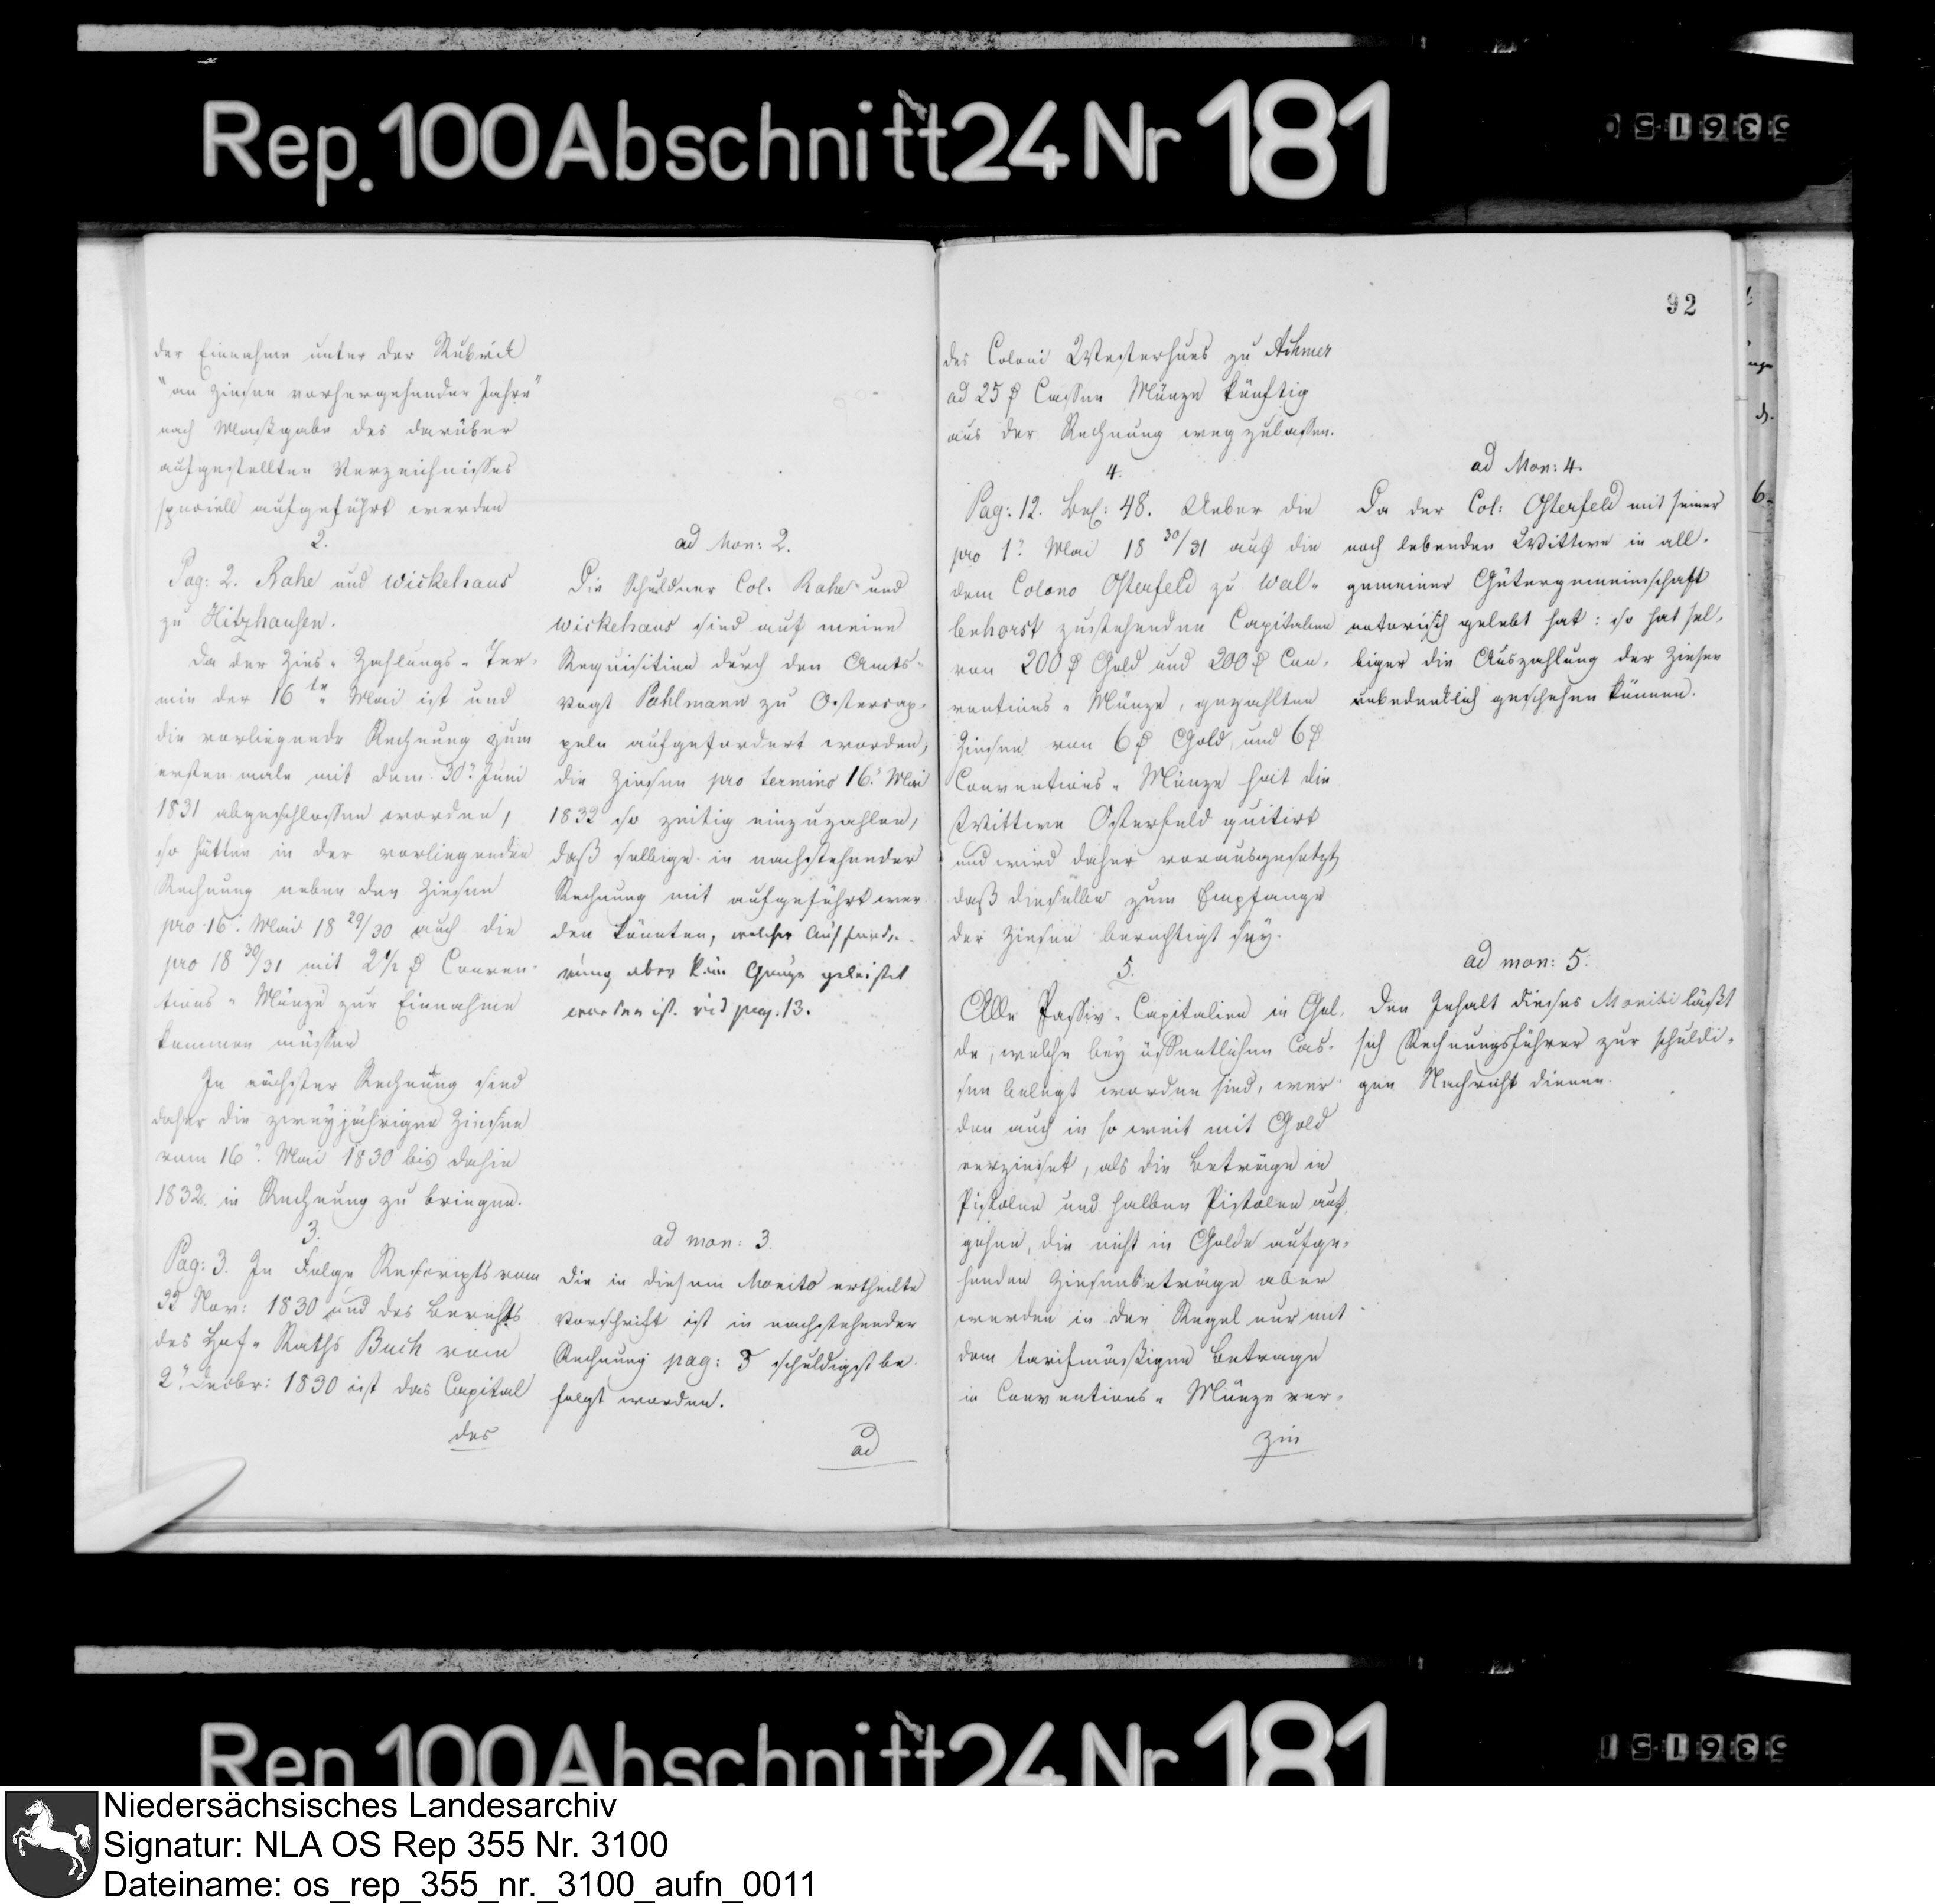 Rep. 100 Abschnitt 24 Nr 181
der Einnahme unter der Rubrik
"an Zinsen vorhergehender Jahre"
nach Maaßgabe des darüber
aufgestellten Verzeichnisses
speciell aufgeführt werden
2.
Pag: 2. Rahe und Wiekehaus
zu Hitzhausen.
Da der Zins-Zahlungs-Ter-
min der 16te Mai ist und
die vorliegende Rechnung zum
ersten male mit dem 30n Juni
1831 abgeschlossen worden,
so hätten in der vorliegenden
Rechnung neben den Zinsen
pro 16. Mai 18 29/30 auch die
pro 18 30/31 mit 2 1/2 ₰ Conven-
tions-Münze zur Einnahme
kommen müssen
In nächster Rechnung sind
daher die zweyjährigen Zinsen
vom 16n Mai 1830 bis dahin
1832. in Rechnung zu bringen.
3.
Pag: 3. In Folge Rescripts vom
Nov: 1830 und des Berichts
des Hof-Raths Buch vom
2n Decbr: 1830 ist das Capital
des
ad Mon: 2.
Die Schuldner Col. Rahe und
Wiekehaus sind auf meine
Requisition durch den Amts-
vogt Pahlmann zu Ostercap-
peln aufgefordert worden,
die Zinsen pro termino 16. Mai
1832 so zeitig einzuzahlen,
daß selbige in nachstehender
Rechnung mit aufgeführt wer-
den könnten, welcher Aufforde-
rung aber kein Genüge geleistet
worden ist. vid pag. 13.
ad mon: 3.
Die in diesem Monito ertheilte
Vorschrift ist in nachstehender
Rechnung pag: 3 schuldigst be-
folgt worden.
ad
92
des Coloni Westerhues zu Achmer
ad 25 ₰ Cassen Münze künftig
aus der Rechnung wegzulassen.
4.
Pag: 12. Bel: 48. Ueber die
pro 1n Mai 18 30/31 auf die
dem Colono Osterfeld zu Wal-
lenhorst zustehenden Capitalien
von 200 ₰ Gold und 200 ₰ Con-
ventions-Münze, gezahlten
Zinsen von 6 ₰ Gold und 6 ₰
Conventions-Münze hat die
Wittwe Osterfeld quitirt
und wird daher vorausgesetzt,
daß dieselbe zum Empfange
der Zinsen berechtigt sey.
5.
Alle Passiv-Capitalien in Gol-
de, welche bey öffentlichen Cas-
sen belegt worden sind, wer-
den auch in so weit mit Gold
verzinset, als die Beträge in
Pistolen und halben Pistolen auf-
gehen, die nicht in Golde aufge-
henden Zinsenbeträge aber
werden in der Regel nur mit
dem tarifmäßigen Betrage
in Conventions-Münze ver-
zin
ad Mon: 4.
Da der Col: Osterfeld mit seiner
noch lebenden Wittwe in all-
gemeiner Gütergemeinschaft
notorisch gelebt hat: so hat sel-
biger die Auszahlung der Zinsen
unbedenklich geschehen können.
ad mon: 5.
Den Inhalt dieses Moniti läßt
sich Rechnungsführer zur schuldi-
gen Nachricht dienen.
Rep. 100 Abschnitt 24 Nr 181
Niedersächsisches Landesarchiv
Signatur: NLA OS Rep 355 Nr. 3100
Dateiname: os_rep_355_nr._3100_aufn_0011